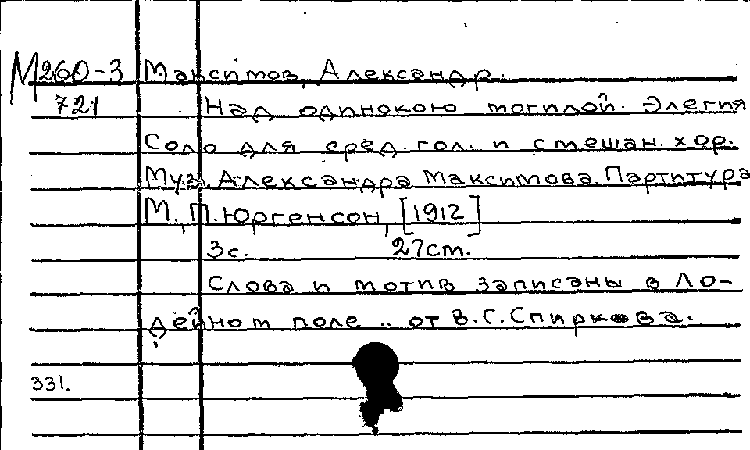 М260-3 Максимов, Александр.
721 Над одинокою могилой. Элегия
Соло для сред гол. и смешан. хор.
Муз. Александра Максимова. Партитура
М., П. Юргенсон, [1912]
3с. 27см.
Слова и мотив записаны в Ло-
дейном поле .. от В.С. Спиркова.
331.